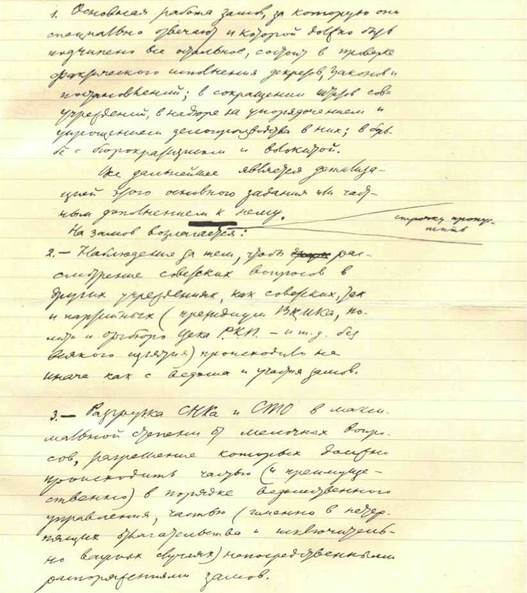 1. Основная работа замов, за которую они
специально отвечают и которой должно быть
подчинено все остальное, состоит в проверке
фактического исполнения декретов, законов и
постановлений; в сокращении штатов сов-
учреждений, в надзоре за упорядочением и
упрощением делопроизводства в них; в борь-
бе с бюрократизмом и волокитой.
Все дальнейшее является детализа-
цией этого основного задания или част-
ным дополнением к нему.
строчку пропу-
стить
На замов возлагается:
2.— Наблюдение за тем, чтобы рас-
смотрение советских вопросов в
других учреждениях, как советских, так
и партийных (президиум ВЦИКа, По-
лит и оргбюро Цека РКП. – и т.д. без
всякого изъятия) происходило не
иначе как с ведома и участия замов.
3.— Разгрузка СНКа и СТО в макси-
мальной степени от мелочных вопро-
сов, разрешение которых должно
происходить частью (и преимуще-
ственно) в порядке ведомственного
управления, частью (именно в нетер-
пящих отлагательства и исключитель-
но важных случаях) непосредственными
распоряжениями замов.